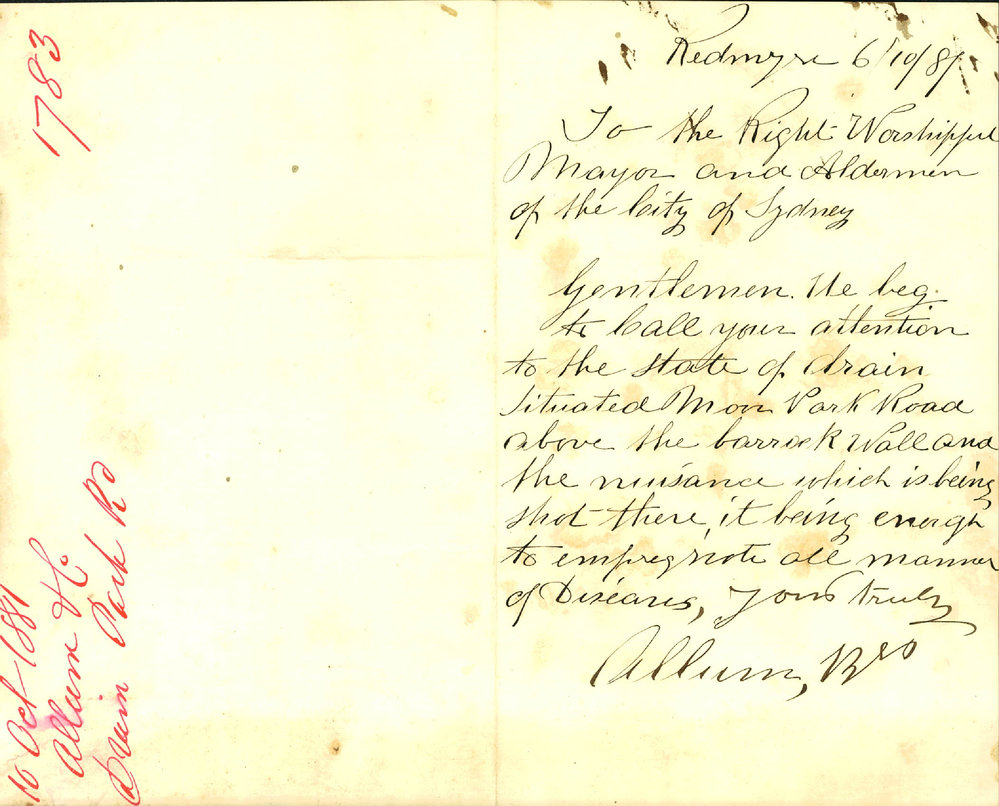 1783
10 Oct 1881
Allum H.
Drain Park Rd
Redmyre 6/10/81
To the Right Worshipful
Mayor and Aldermen
of the City of Sydney
Gentlemen. We beg
to Call your attention
to the state of drain
Situated Moor Park Road
above the barrack Wall and
the nuisance which is being
shot there, it being enorgh
to empregnote all manner
of Diseases, Yours truly
Allum, Bro